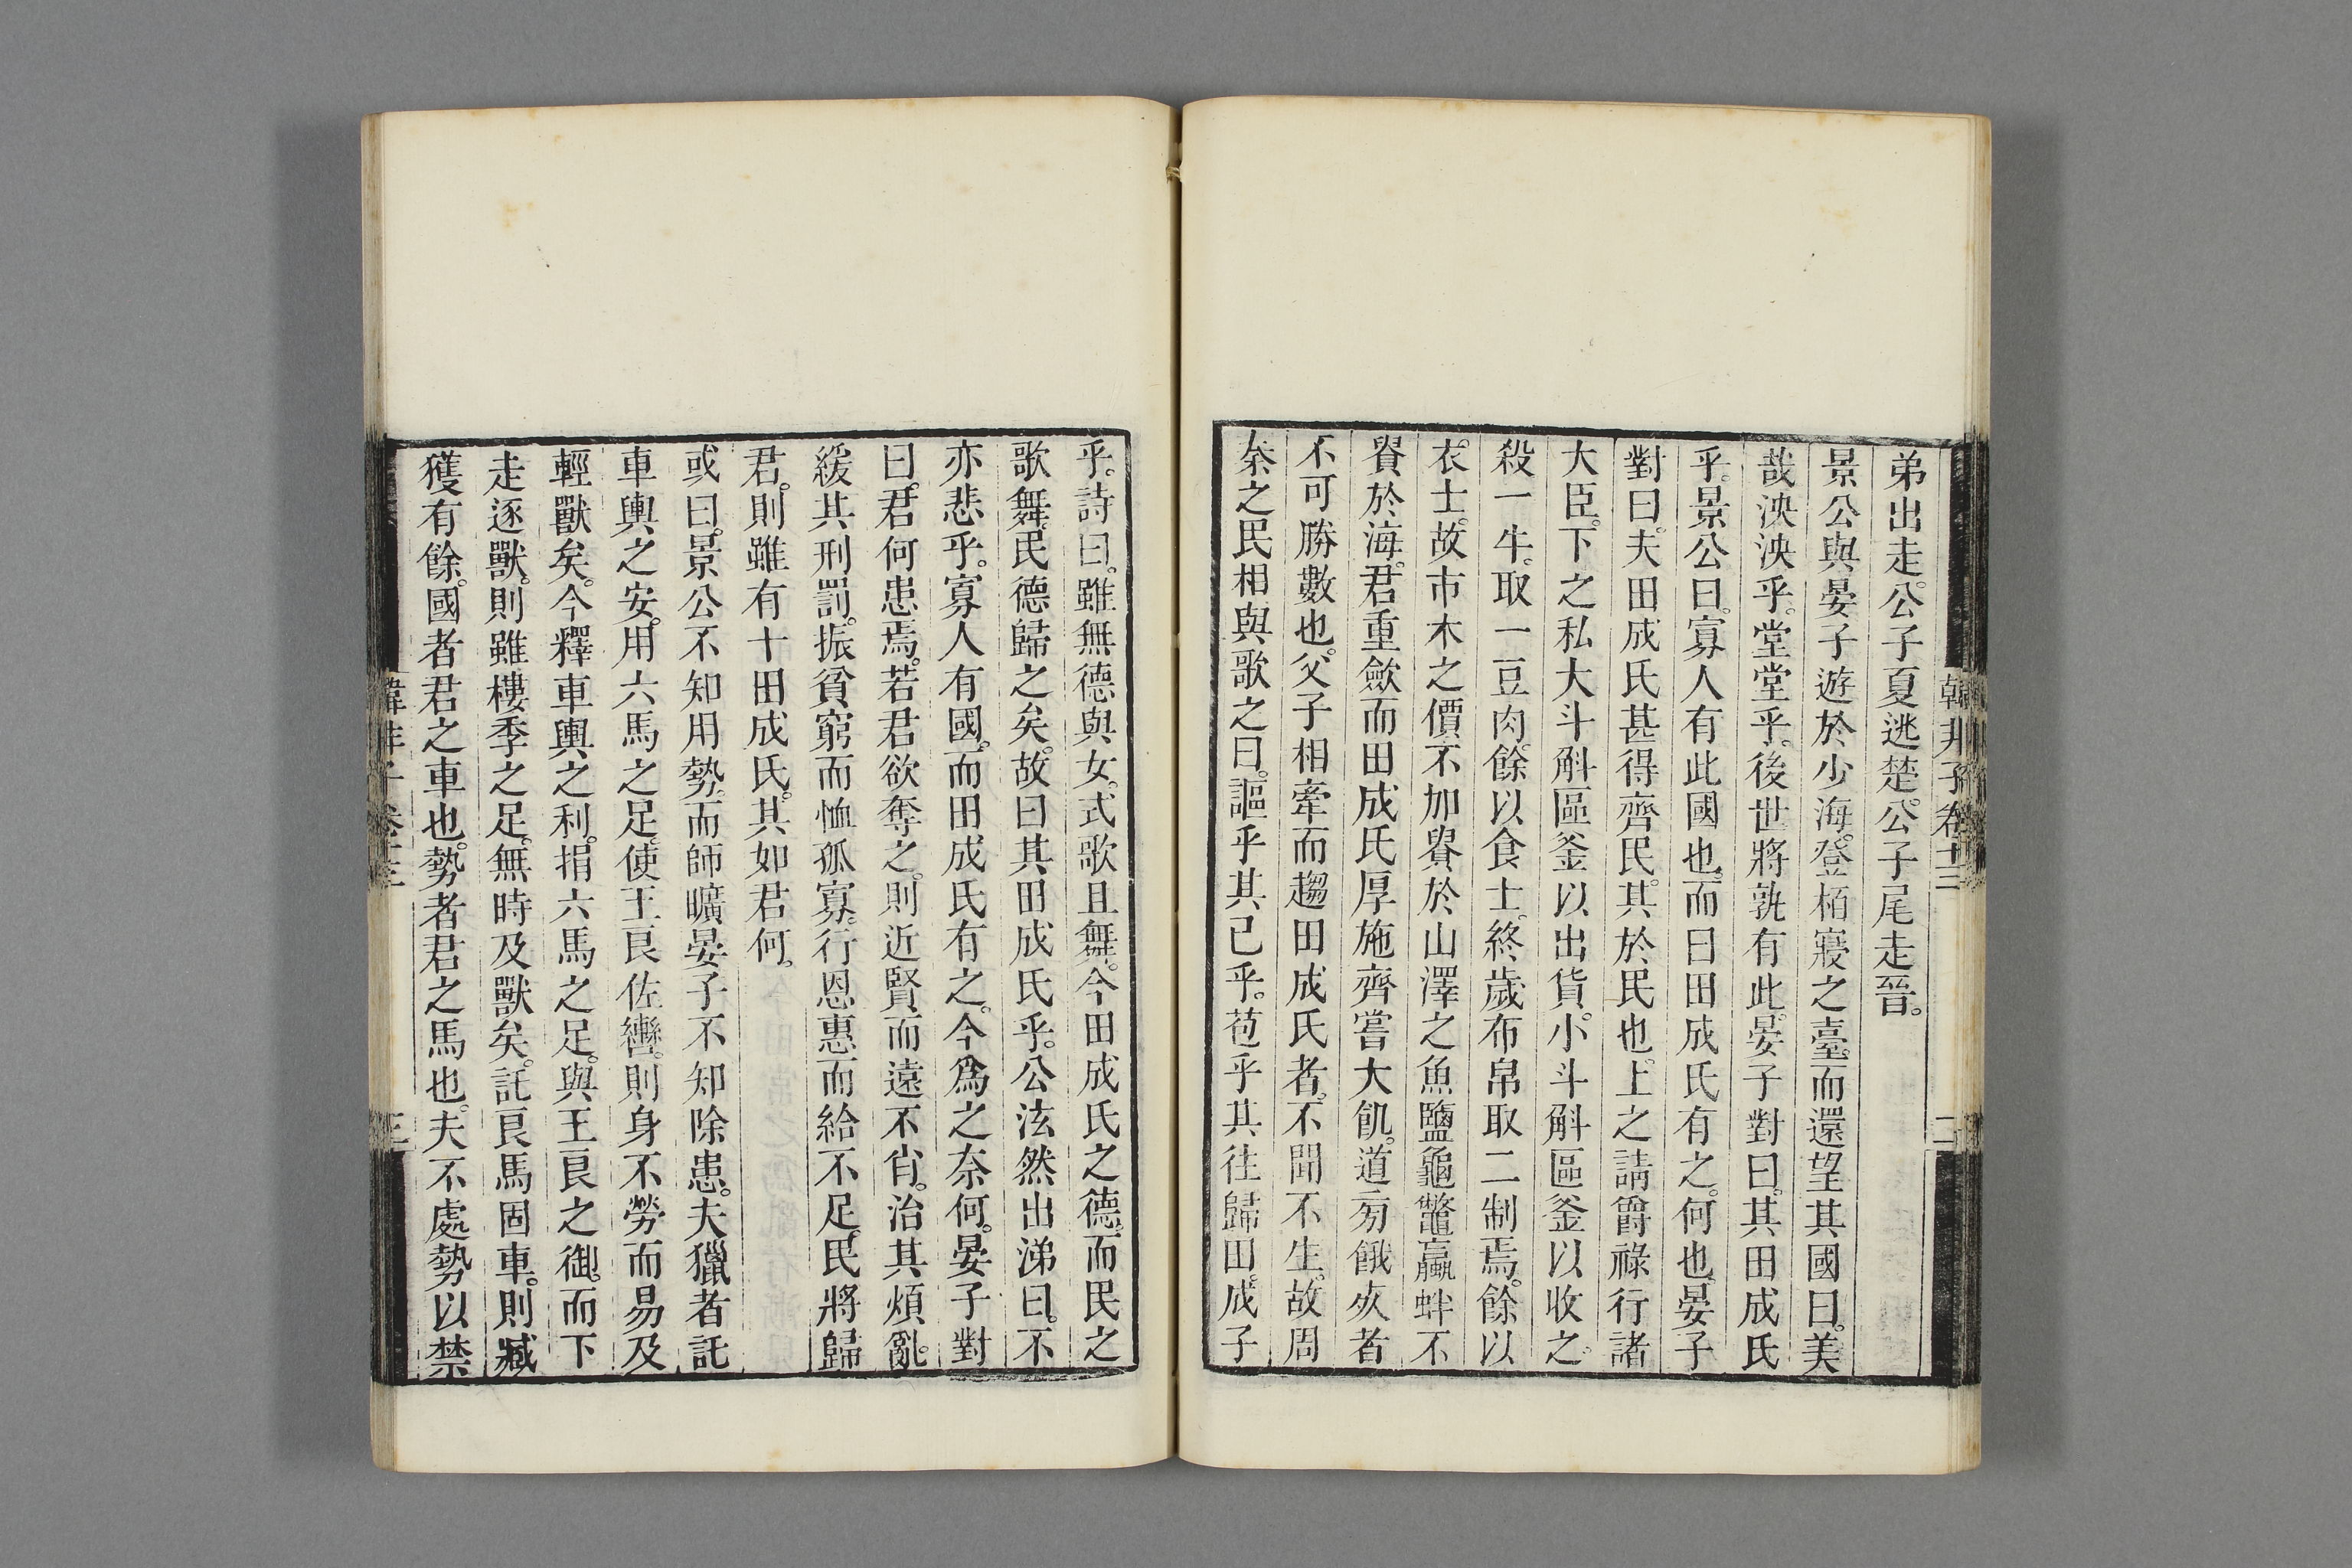 韓非子卷十三
二
弟出走。公子夏逃楚。公子尾走晉。
景公與晏子遊於少海。登栢寢之臺。而還望其國曰。美
哉泱泱乎。堂堂乎。後世將孰有此。晏子對曰。其田成氏
乎。景公曰。寡人有此國也。而曰田成氏有之。何也。晏子
對曰。夫田成氏甚得齊民。其於民也。上之請爵祿行諸
大臣。下之私大斗斛區釜以出貨。小斗斛區釜以收之。
殺一牛。取一豆肉。餘以食士。終歲布帛取二制焉。餘以
衣士。故市木之價不加貴於山澤之魚鹽龜鼈蠃蚌不
貴於海。君重斂而田成氏厚施齊嘗大飢。道旁餓死者
不可勝數也。父子相牽而趨田成氏者。不聞不生。故周
秦之民相與歌之曰。謳乎其已乎。苞乎其往歸田成子
乎。詩曰。雖無德與女。式歌且舞。今田成氏之德。而民之
歌舞。民德歸之矣。故曰其田成氏乎。公泫然出涕曰。不
亦悲乎。寡人有國。而田成氏有之。今爲之奈何。晏子對
曰。君何患焉。若君欲奪之。則近賢而遠不肖。治其煩亂。
緩其刑罰。振貧窮而恤孤寡。行恩惠而給不足。民將歸
君。則雖有十田成氏。其如君何。
或曰。景公不知用勢。而師曠晏子不知除患。夫獵者託
車輿之安。用六馬之足。使王良佐轡。則身不勞而易及
輕獸矣。今釋車輿之利。捐六馬之足。與王良之御。而下
走逐獸。則雖樓季之足。無時及獸矣。託良馬固車。則臧
獲有餘。國者君之車也。勢者君之馬也。夫不處勢以禁
韓非子卷十三
三